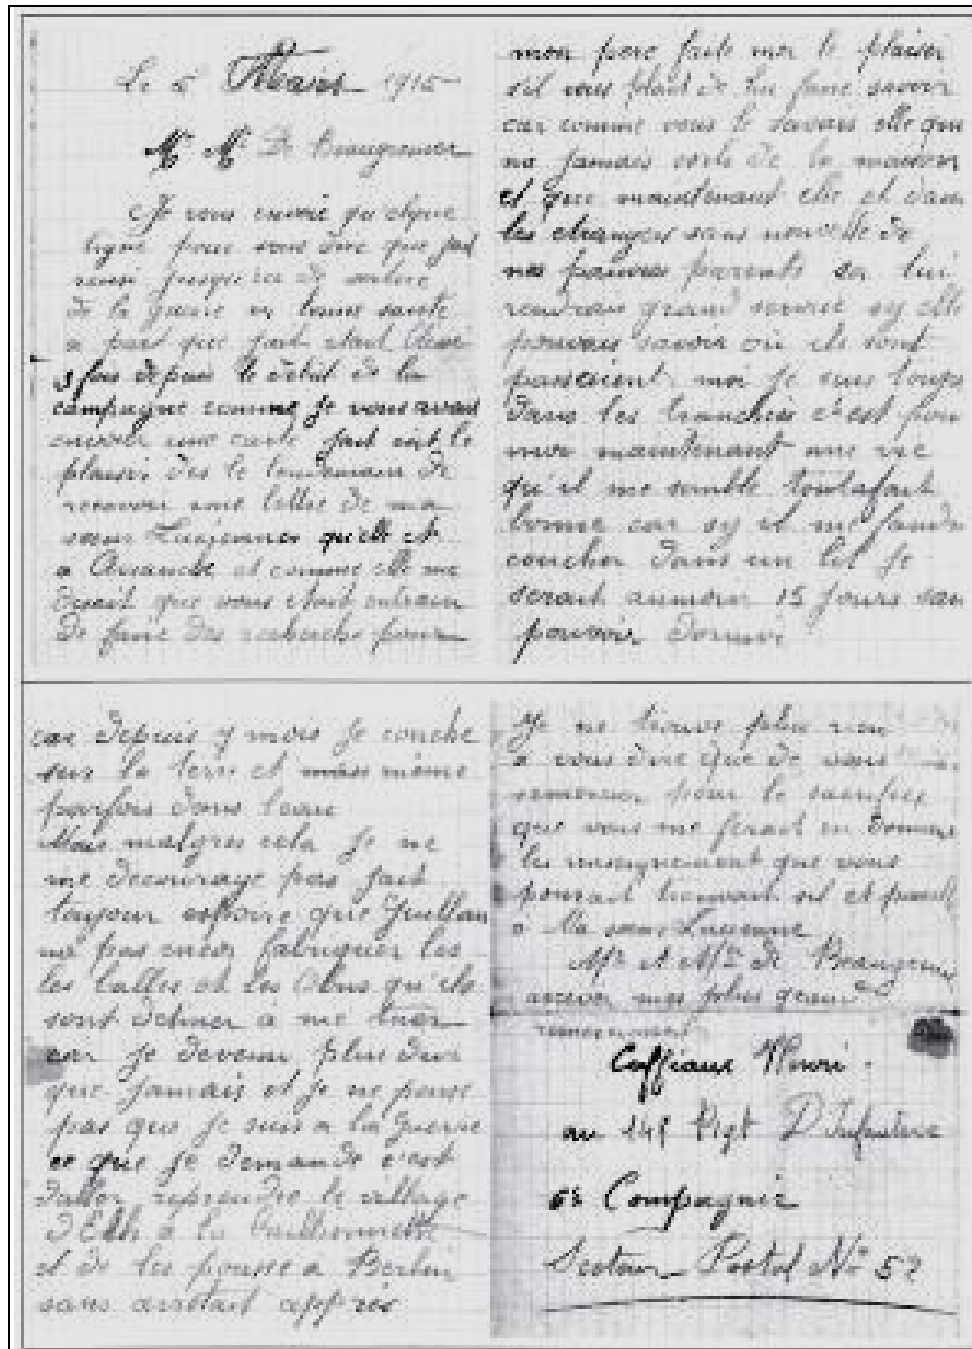 Le 5 Mars 1915
Mr Me De Beaugrenier
Je vous envoie quelque
ligne pour vous dire que jai
reussi jusque ici de sortire
de la guerre en bonne santé
a part que jait etait blessé
3 fois depuis le debut de la
campagne comme je vous avais
envoier une carte jait eut le
plaisir des le lendemain de
recevoir une lettre de ma
soeur qu'elle et
a Avranche et comme elle me
disait que vous etait entrain
de faire des recherche pour
mon pere faite moi le plaisir
s'il vous plait de lui faire savoir
car comme vous le savais elle qui
na jamais sorti de la maison
et que maintenant elle et dans
les etranger sans nouvelle de
nos pauvres parents sa lui
rendrais grand service sy elle
pouvais savoir où ils sont
moi je suis toujo
dans les tranchées c'est pour
moi maintenant une vie
qu'il me semble toutafait
bonne car sy il me faudr
coucher dans un lit je
serait aumoin 15 jours san
pouvoir dormir
car depuis 7 mois je couche
sur la terre et mais même
parfois dans leaue
Mais malgres cela je ne
me decourage pas jait
toujour espoire que Guillau
na pas encor fabriquer les
les balles et les Obus qu'ils
sont destiner à me tuer
car je devenu plus dur
que jamais et je ne pense
pas que je suis a la guerre
ce que je demande c'est
daller reprendre le village
d'Eth à la baillonnette
et de les pousse a Berlin
sans arretait apprès
Je ne trouve plus rien
a vous dire que de vous
remercier pour le sacrifice
que vous me ferait en donnan
les renseignement que vous
pourait trouvait sil et possib
a Ma soeur Lucienne
Mr et Me de Beaugrenier
recevoir mes plus grand
Cuffiaux Henri
au 145 Rigt D'Infanterie
Compagnie
Secteur Postal No 52